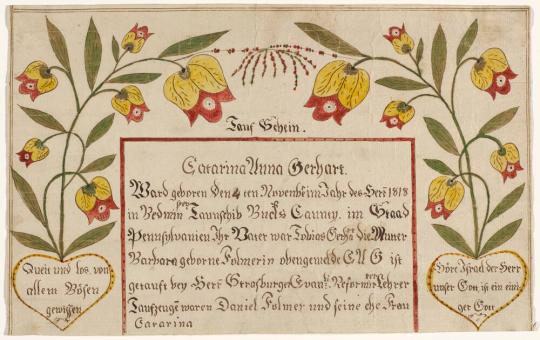 Tauf Schein.
Catarina Anna Gerhart.
Ward geboren den 4 ten Novembe im Jahr des Herr 1818
in Bedmin ster Taunschib Bucks Caunty. im Staad
Pennsylvanien Ihr Vater war Tobias Gerhart die Mutter
Barbara geborne Folmerin obengemelde C A G ist
getauft bey Herr Strosburger Evan: Reformirter Lehrer
Taufzeuge waren Daniel Folmer und seine ehe Frau
Catarina
Queit und los von
allem Bösen
gewissen
Höre Israel der Herr
unser Gott ist ein eini
ger Gott